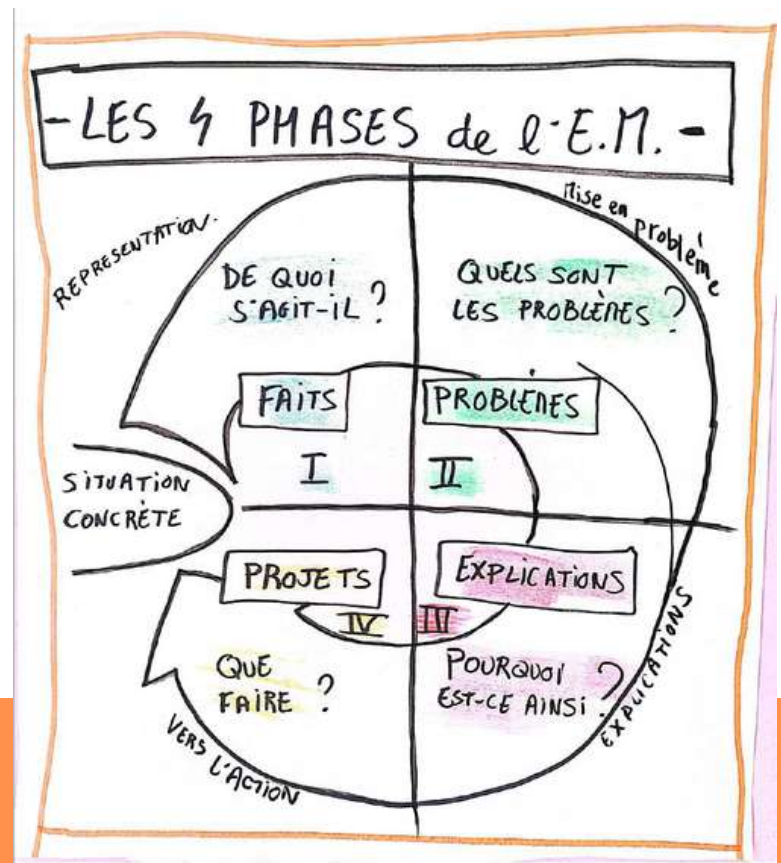 - LES 4 PHASES de l'E.M. -
REPRESENTATION.
Mise en problème
DE QUOI
S'AGIT-IL ?
QUELS SONT
LES PROBLÈMES ?
FAITS
PROBLÈMES
I
II
SITUATION
CONCRÈTE
PROJETS
EXPLICATIONS
IV
III
QUE
FAIRE ?
POURQUOI
EST-CE AINSI ?
VERS L'ACTION
EXPLICATIONS